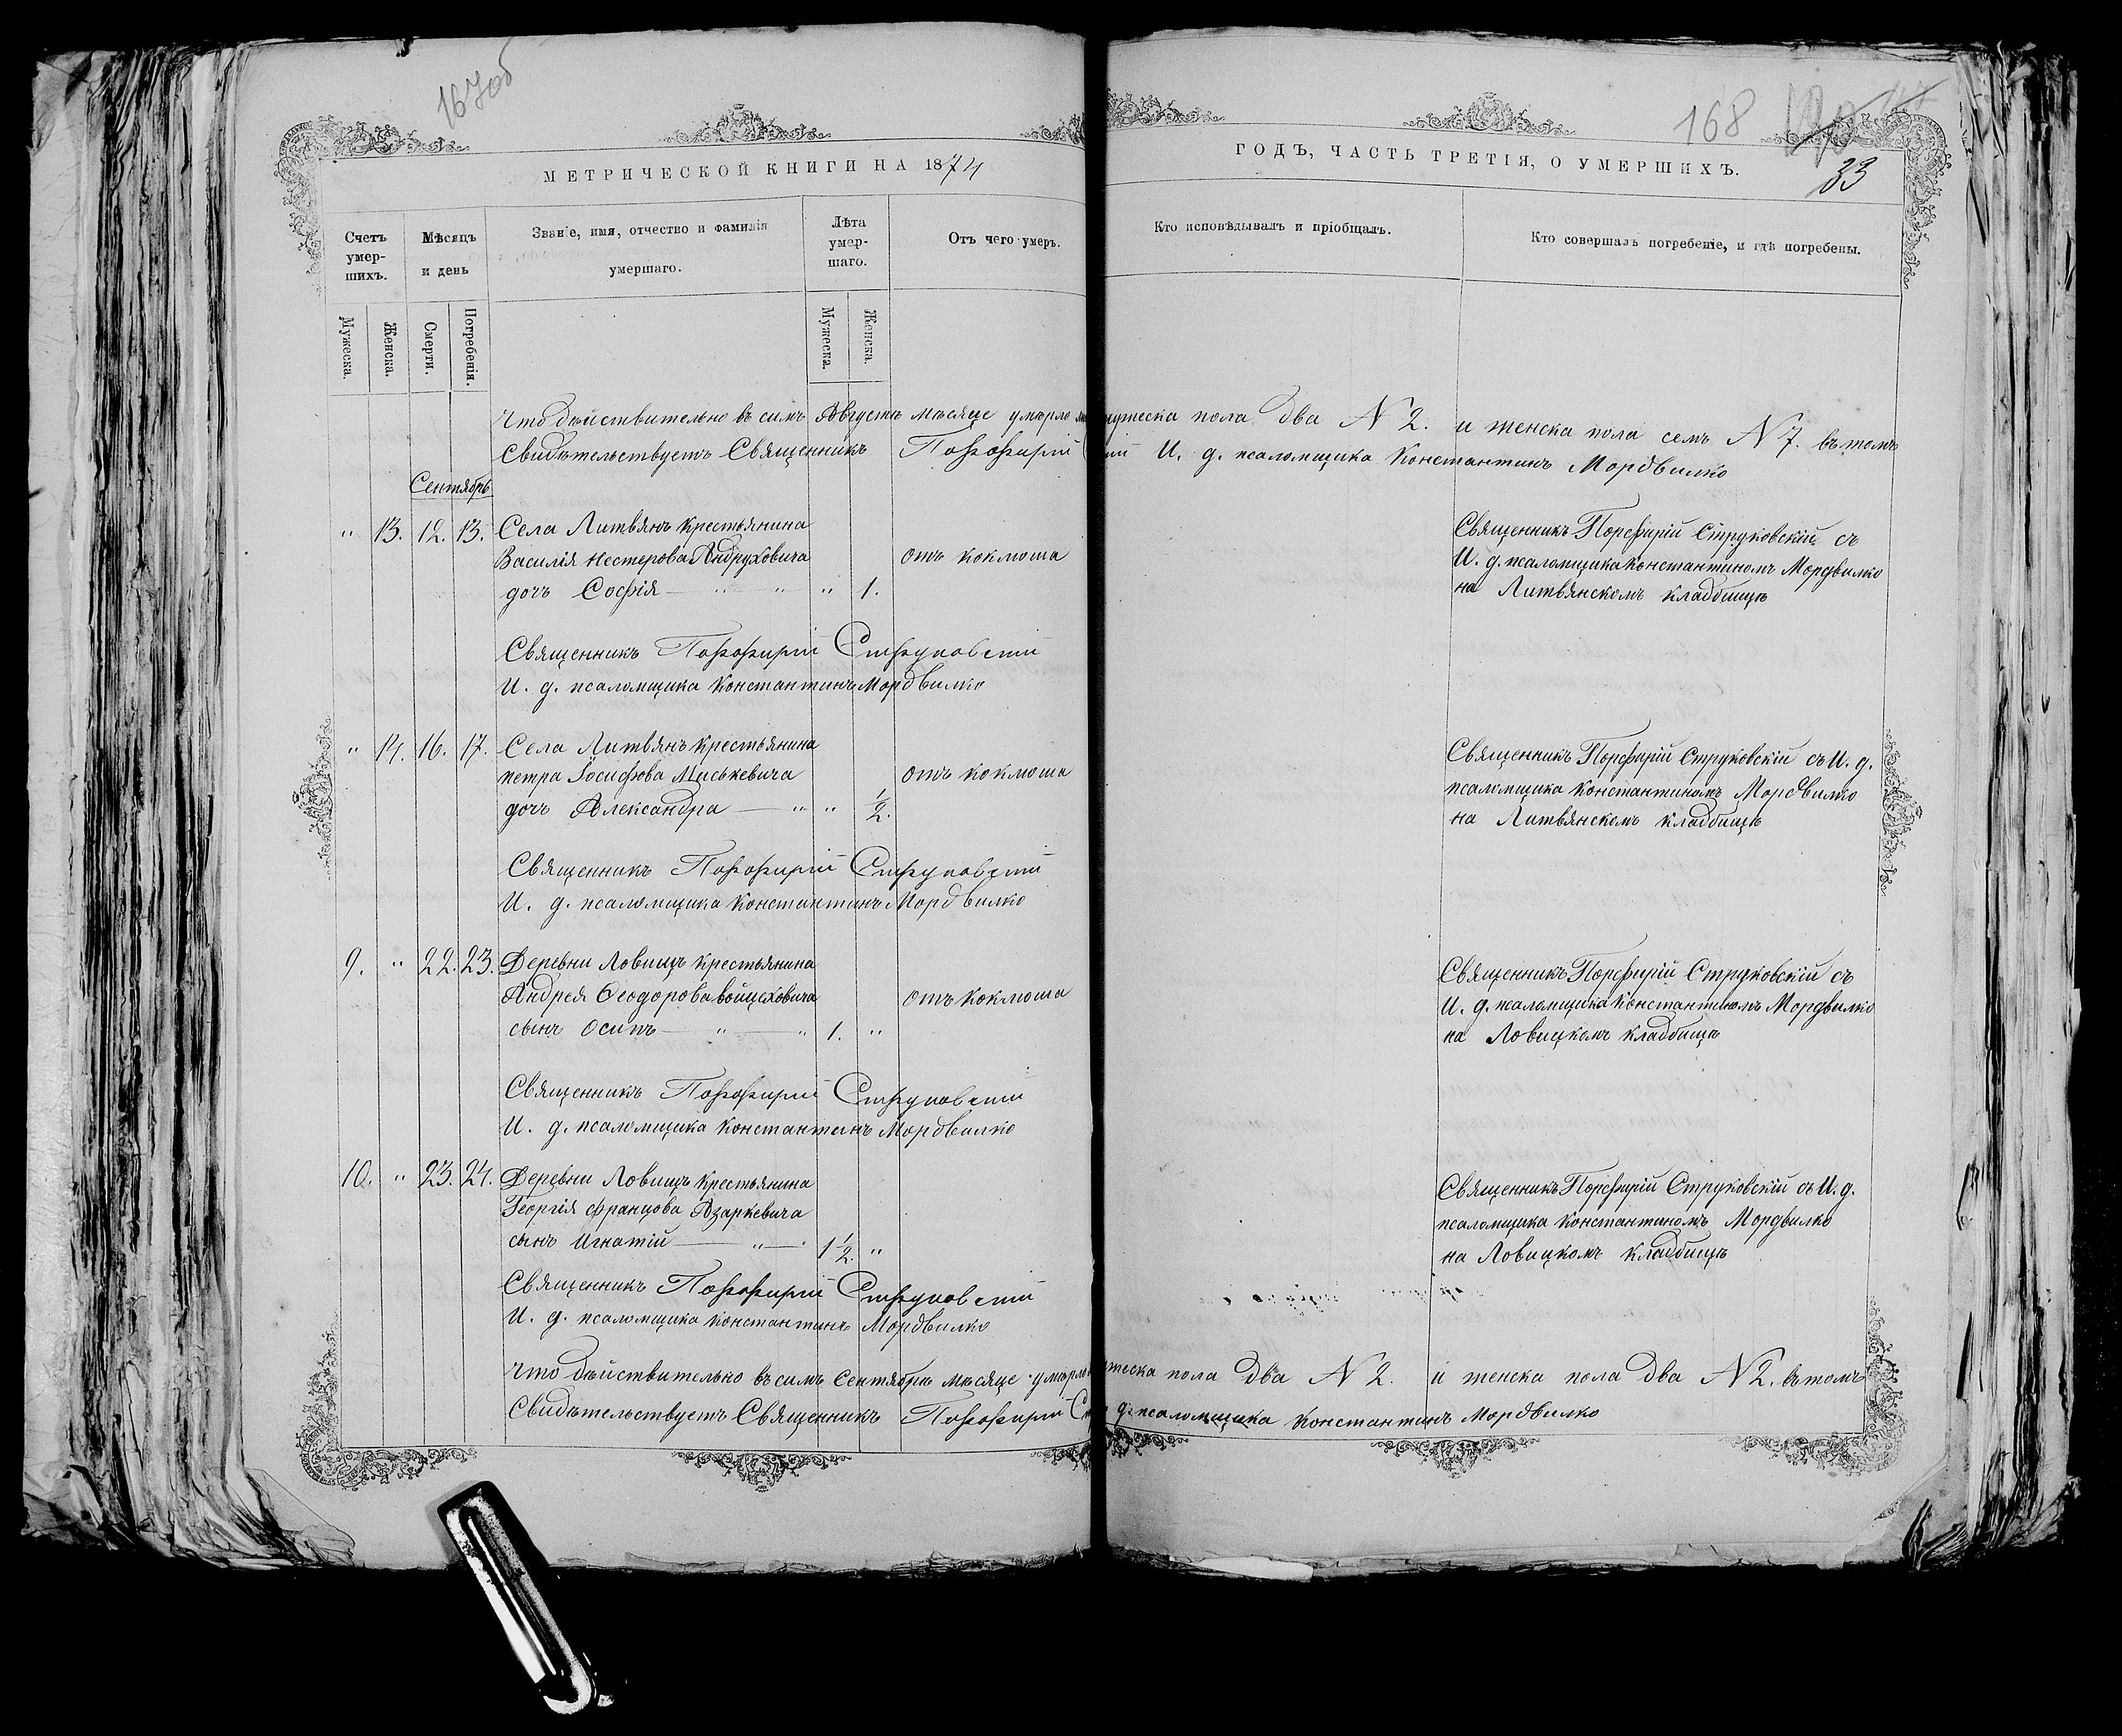 167об
МЕТРИЧЕСКОЙ КНИГИ НА 1874
Счетъ умер-шихъ.
Мѣсяцъ и день
Званіе, имя, отчество и фамилія умершаго.
Лѣта умер-шаго.
Отъ чего умеръ.
Мужеска.
Женска.
Смерти.
Погребенія.
Мужеска.
Женска.
Что дѣйствительно въ симъ Августѣ мѣсяце умерло
Свидѣтельствуетъ Священникъ Порфирій
Сентябрь
" 13. 12. 13. Села Литвянъ крестьянина
Василія Нестерова Андруховича отъ коклюша
дочь Софія — " " " 1.
Священникъ Порфирій Струковскій
И. д. псаломщика Константинъ Мордвилко
" 14. 16. 17. Села Литвянъ крестьянина
петра Іосифова Миськевича отъ коклюша
дочь Александра — " " 1/2.
Священникъ Порфирій Струковскій
И. д. псаломщика Константинъ Мордвилко
9. " 22. 23. Деревни Ловищъ крестьянина
Андрея Ѳеодорова Войцеховича отъ коклюша
сынъ Осипъ — " — " 1. "
Священникъ Порфирій Струковскій
И. д. псаломщика Константинъ Мордвилко
10. " 23. 24. Деревни Ловищъ крестьянина
Георгія Францова Азаркевича
сынъ Игнатій — " — 1 1/2. "
Священникъ Порфирій Струковскій
И. д. псаломщика Константинъ Мордвилко
Что дѣйствительно въ симъ Сентябрѣ мѣсяце умерло
Свидѣтельствуетъ Священникъ Порфирій
168
33
ГОДЪ, ЧАСТЬ ТРЕТІЯ, О УМЕРШИХЪ.
Кто исповѣдывалъ и пріобщалъ.
Кто совершалъ погребеніе, и гдѣ погребены.
мужеска пола два N 2. и женска пола семь N 7. въ томъ
И. д. псаломщика Константинъ Мордвилко
Священникъ Порфирій Струковскій съ
И. д. псаломщика Константиномъ Мордвилко
на Литвянскомъ кладбищѣ
Священникъ Порфирій Струковскій съ И. д.
псаломщика Константиномъ Мордвилко
на Литвянскомъ кладбищѣ
Священникъ Порфирій Струковскій съ
И. д. псаломщика Константиномъ Мордвилко
на Ловицкомъ кладбищѣ
Священникъ Порфирій Струковскій съ И. д.
псаломщика Константиномъ Мордвилко
на Ловицкомъ кладбищѣ
жеска пола два N 2. и женска пола два N 2. въ томъ
д. псаломщика Константинъ Мордвилко